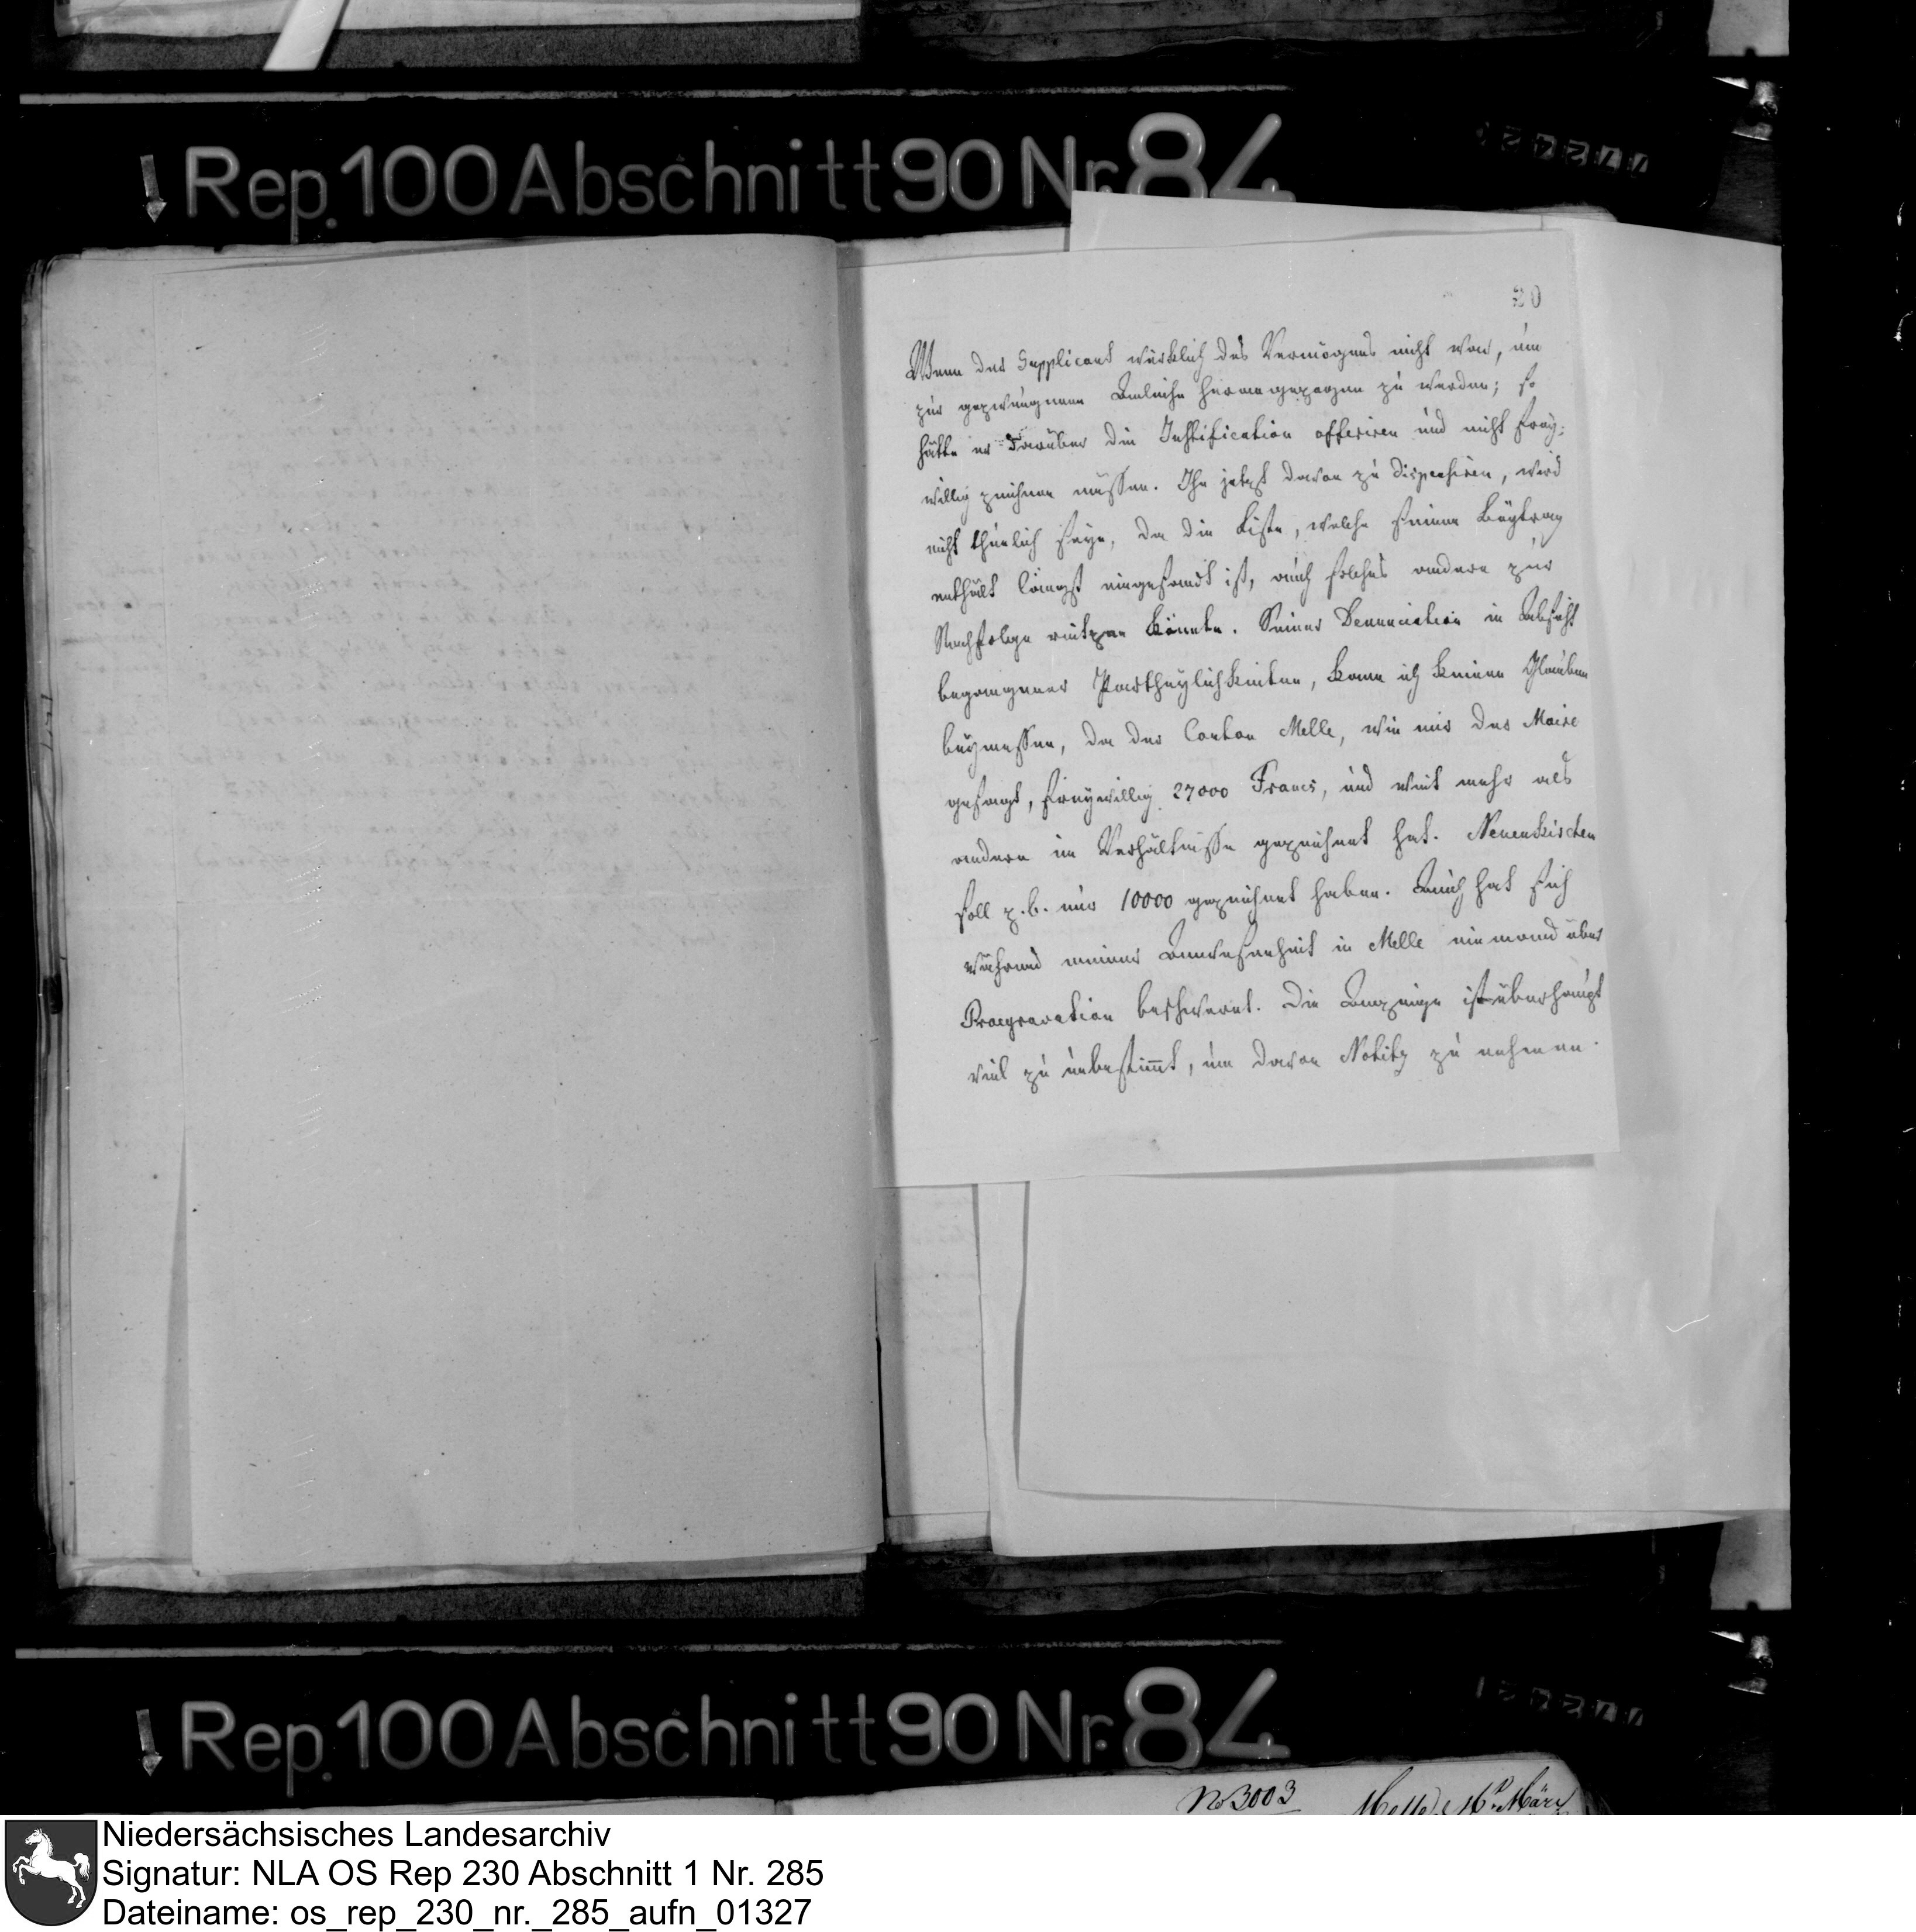 Rep. 100 Abschnitt 90 Nr. 84
20
Wenn der Supplicant würklich des Vermögens nicht war, um
zur gezwungnen Anleihe herangezogen zu werden; so
hätte er darüber die Justification offeriren und nicht frey-
willig zeichnen müssen. Ihn jetzt davon zu dispensiren, wird
nicht thunlich seyn, da die Liste, welche seinen Beytrag
enthält längst eingesandt ist, auch solches andere zur
Nachfolge reitzen könnte. Seiner Denunciation in Absicht
begangener Partheylichkeiten, kann ich keinen Glauben
beymessen, da der Canton Melle, wie mir der Maire
gesagt, freywillig 27000 Francs, und weit mehr als
andere im Verhältnisse gezeichnet hat. Neuenkirchen
soll z. b. nur 10000 gezeichnet haben. Auch hat sich
während meiner Anwesenheit in Melle niemand über
Praegravation beschwert. Die Anzeige ist überhaupt
viel zu unbestim̄t, um davon Notitz zu nehmen.
Rep. 100 Abschnitt 90 Nr. 84
No 3003 Melle März
Niedersächsisches Landesarchiv
Signatur: NLA OS Rep 230 Abschnitt 1 Nr. 285
Dateiname: os_rep_230_nr._285_aufn_01327